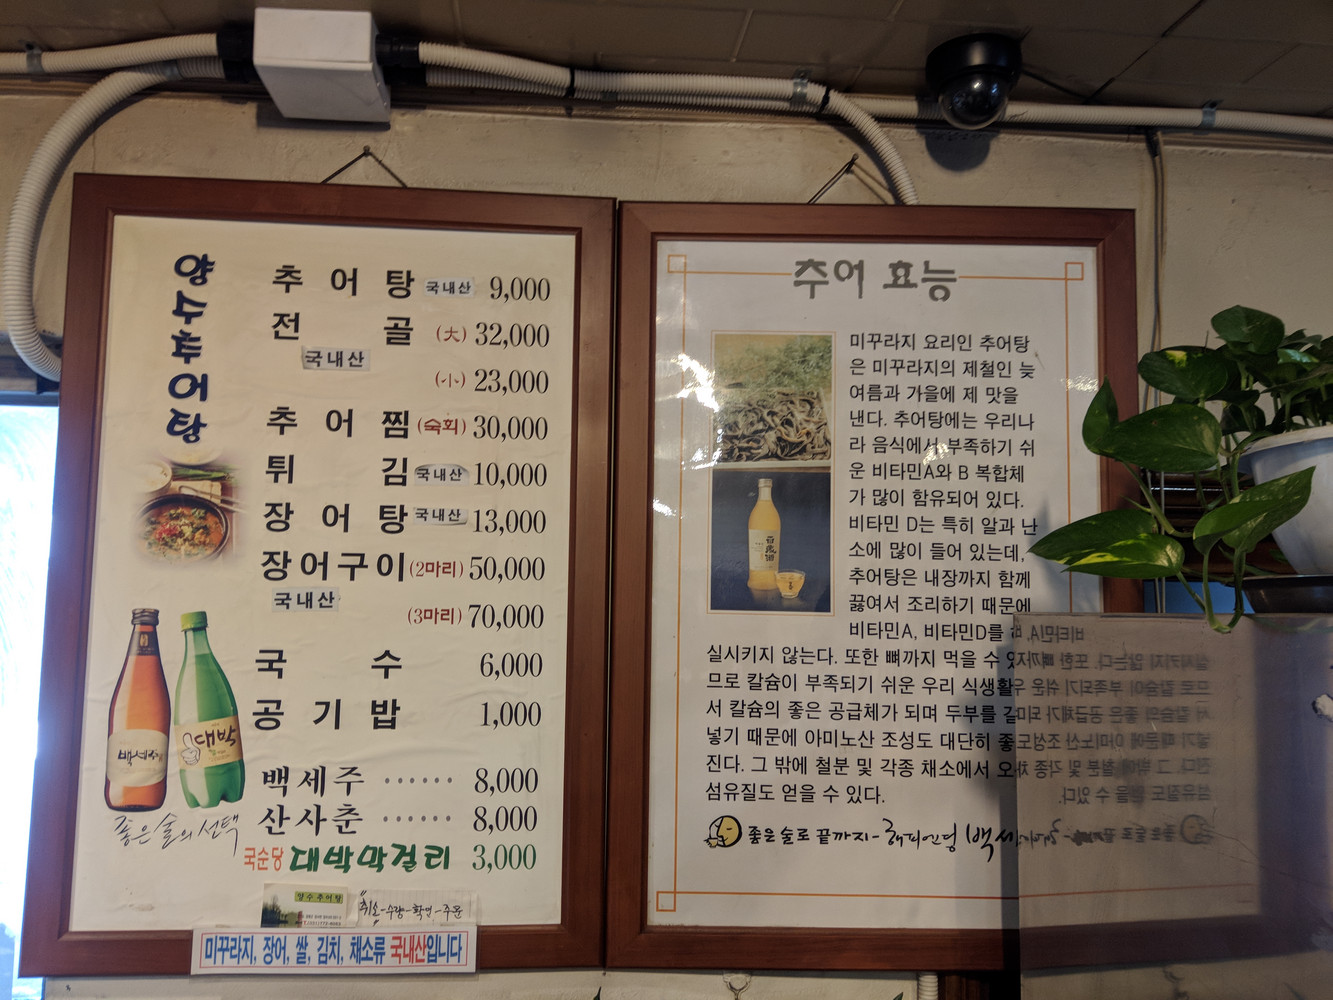 양수추어탕
추어탕 국내산 9,000
전골 (大) 32,000
국내산
(小) 23,000
추어찜 (숙회) 30,000
튀김 국내산 10,000
장어탕 국내산 13,000
장어구이 (2마리) 50,000
국내산
(3마리) 70,000
국수 6,000
공기밥 1,000
백세주 ⋯⋯ 8,000
산사춘 ⋯⋯ 8,000
국순당 대박막걸리 3,000
백세주
대박
좋은 술의 선택
양수추어탕
취소-수량-확인-주문
미꾸라지, 장어, 쌀, 김치, 채소류 국내산입니다
추어 효능
미꾸라지 요리인 추어탕
은 미꾸라지의 제철인 늦
여름과 가을에 제 맛을
낸다. 추어탕에는 우리나
라 음식에서 부족하기 쉬
운 비타민A와 B 복합체
가 많이 함유되어 있다.
비타민 D는 특히 알과 난
소에 많이 들어 있는데,
추어탕은 내장까지 함께
끓여서 조리하기 때문에
비타민A, 비타민D를
실시키지 않는다. 또한 뼈까지 먹을 수
므로 칼슘이 부족되기 쉬운 우리 식생활
서 칼슘의 좋은 공급체가 되며 두부를
넣기 때문에 아미노산 조성도 대단히 좋
진다. 그 밖에 철분 및 각종 채소에서
섬유질도 얻을 수 있다.
좋은술로 끝까지-해피엔딩 백